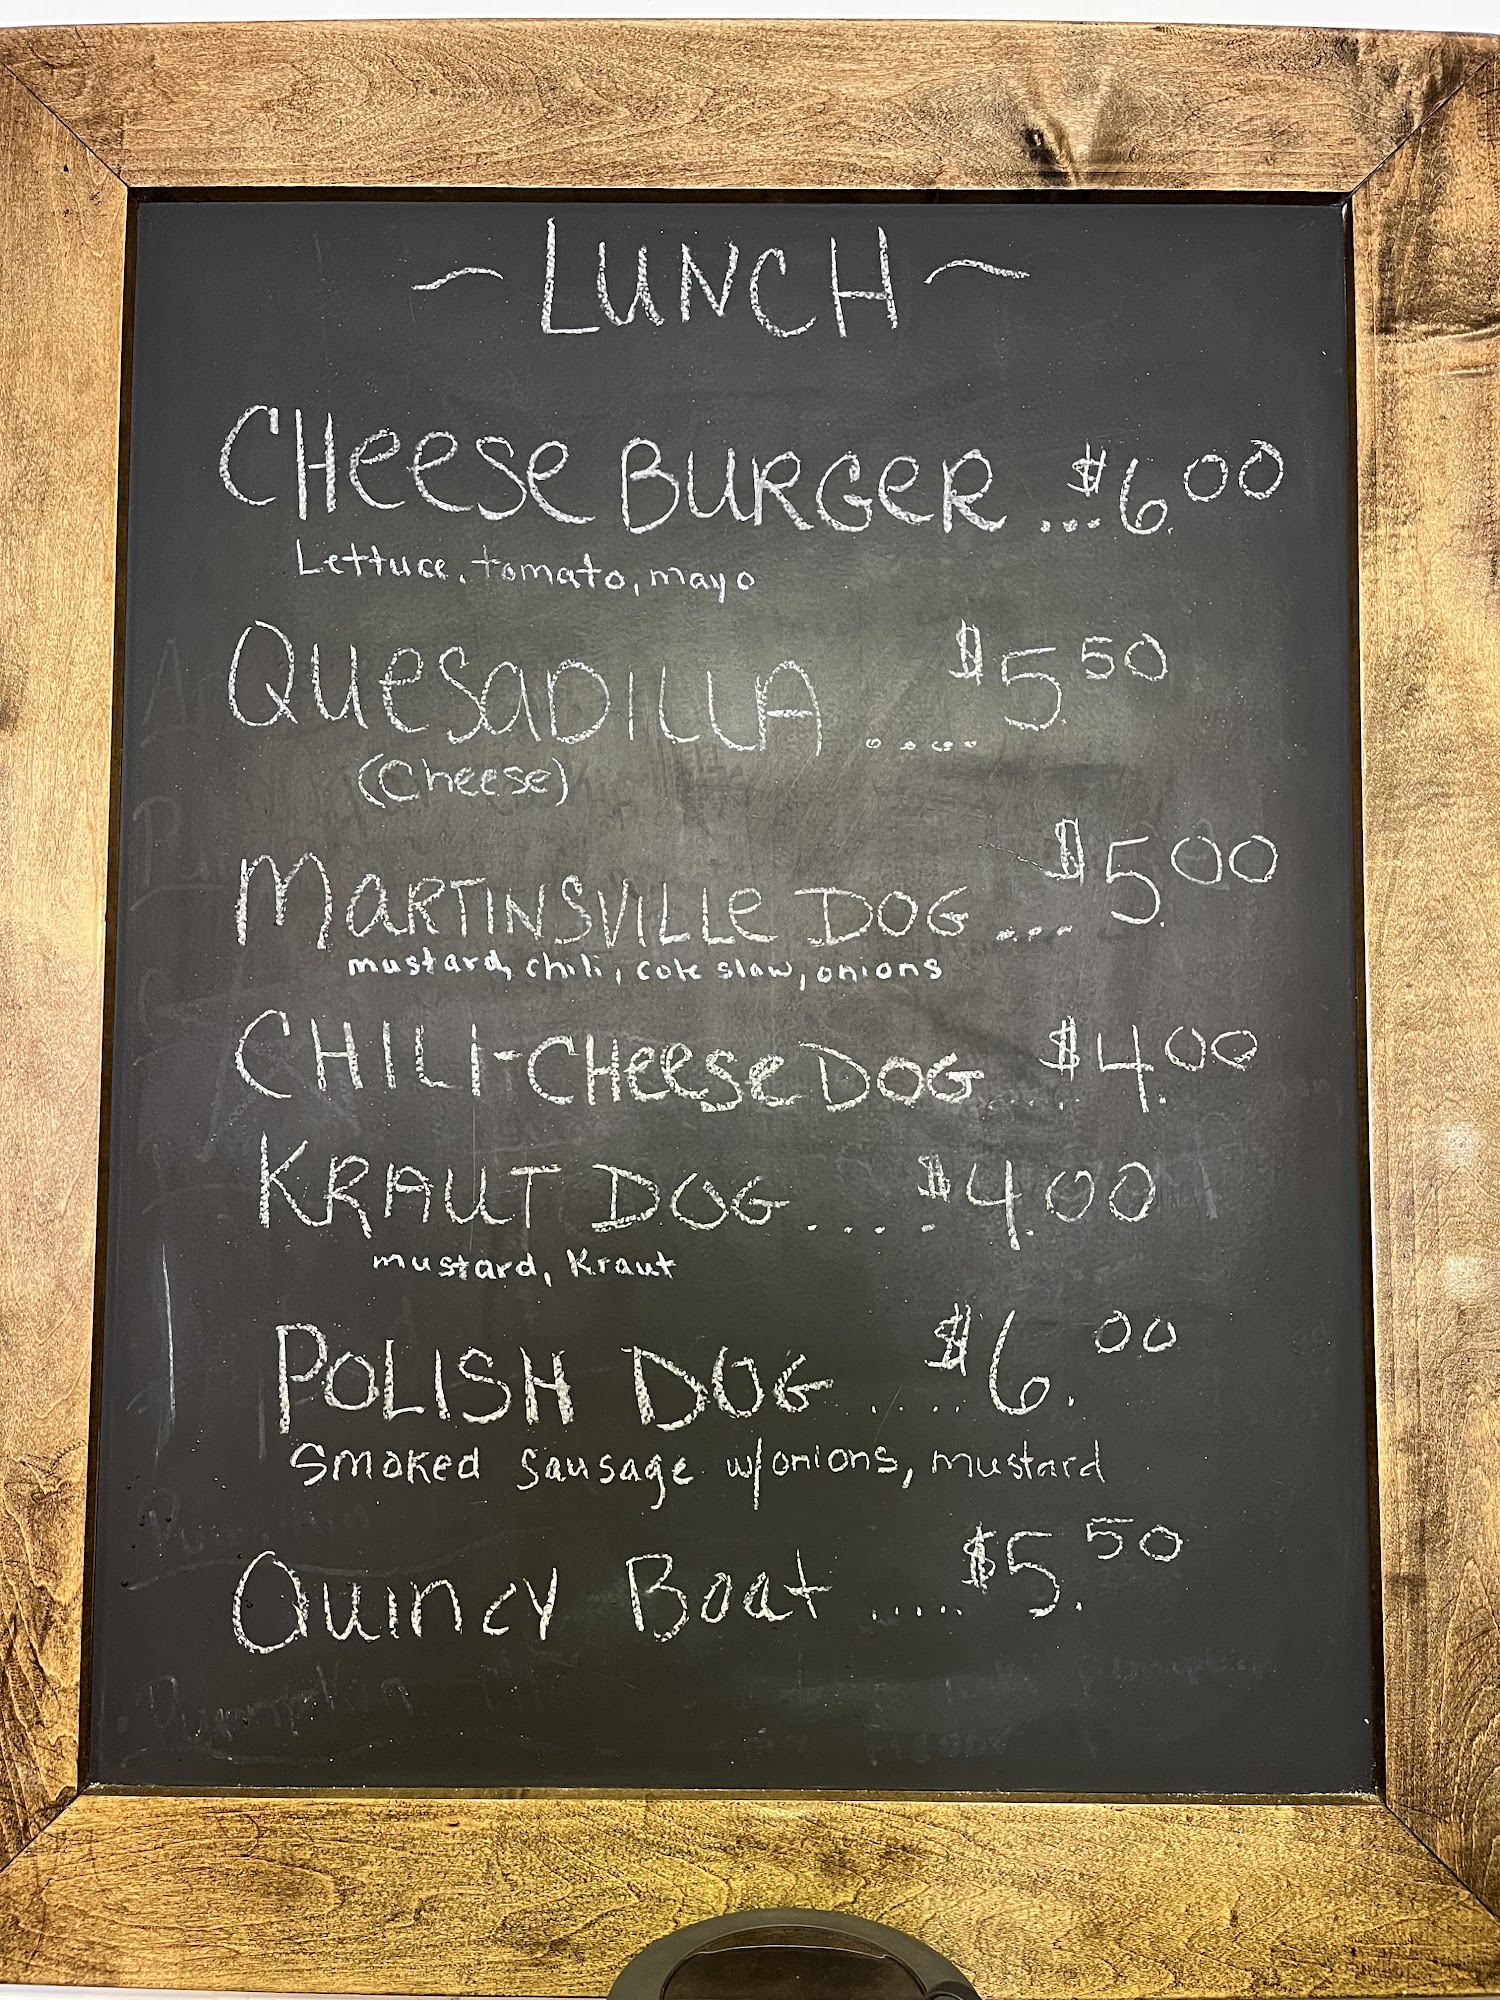 ~ LUNCH ~
CHeese BURGER ... $6.00
Lettuce, tomato, mayo
QuesaDILLA ..... $5.50
(Cheese)
MaRTINSVILLe DOG ... $5.00
mustard, chili, cole slaw, onions
CHILI-CHeese DOG .... $4.00
KRAUT DOG .... $4.00
mustard, Kraut
POLISH DOG ..... $6.00
Smoked Sausage w/onions, mustard
Quincy Boat ..... $5.50